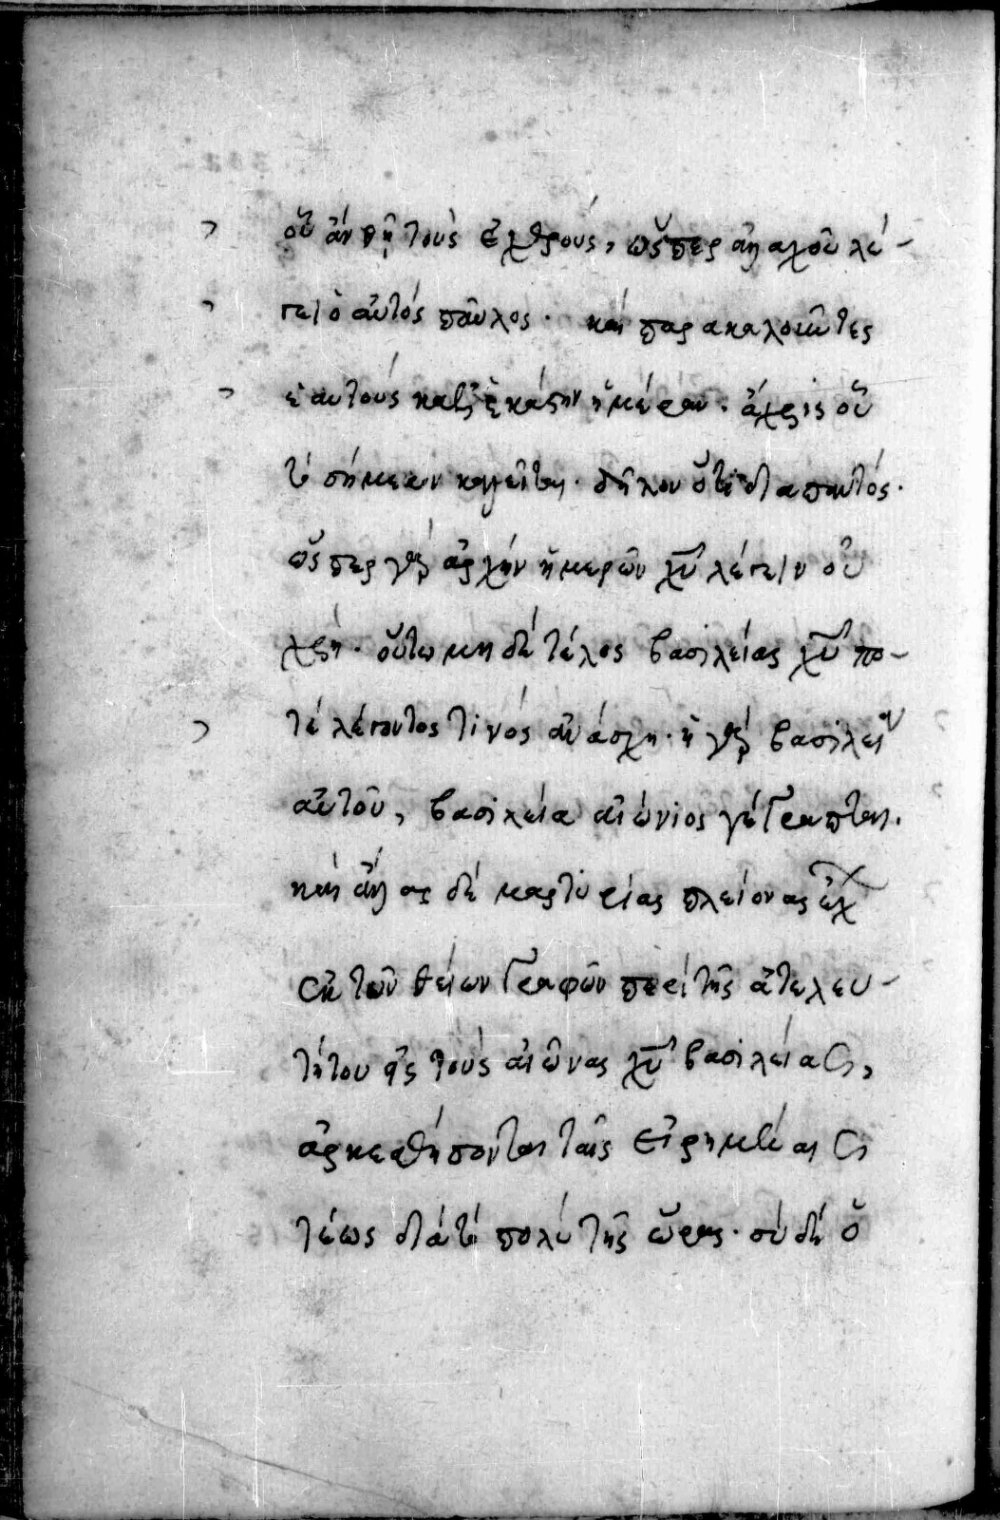 οὗ ἂν θῇ τοὺς ἐχθρούς, ὥσπερ ἀλλαχοῦ λέ-
γει ὁ αὐτός παῦλος· καὶ παρακαλοῦντες
ἑαυτούς καθ' ἑκάστην ἡμέραν· ἄχρις οὗ
τὸ σήμερον καλεῖται· δῆλον ὅτι διαπαντός·
ὥσπερ γὰρ ἀρχήν ἡμερῶν χυ λέγειν οὐ
χρή· οὕτω μηδέ τέλος βασιλείας χυ πο-
τέ λέγοντος τινός ἀνάσχῃ· ἡ γὰρ βασιλεία
αὐτοῦ, βασιλεία αἰώνιος γέγραπται·
καὶ ἄλλας δέ μαρτυρίας πλείονας ἔχ
ἐκ τῶν θείων γραφῶν περὶ τῆς ἀτελευ-
τήτου εἰς τούς αἰῶνας χυ βασιλείας,
ἀρκεσθήσονται ταῖς εἰρημέναις
τέως διά τὸ πολύ τῆς ὥρας· σύ δὲ ὁ